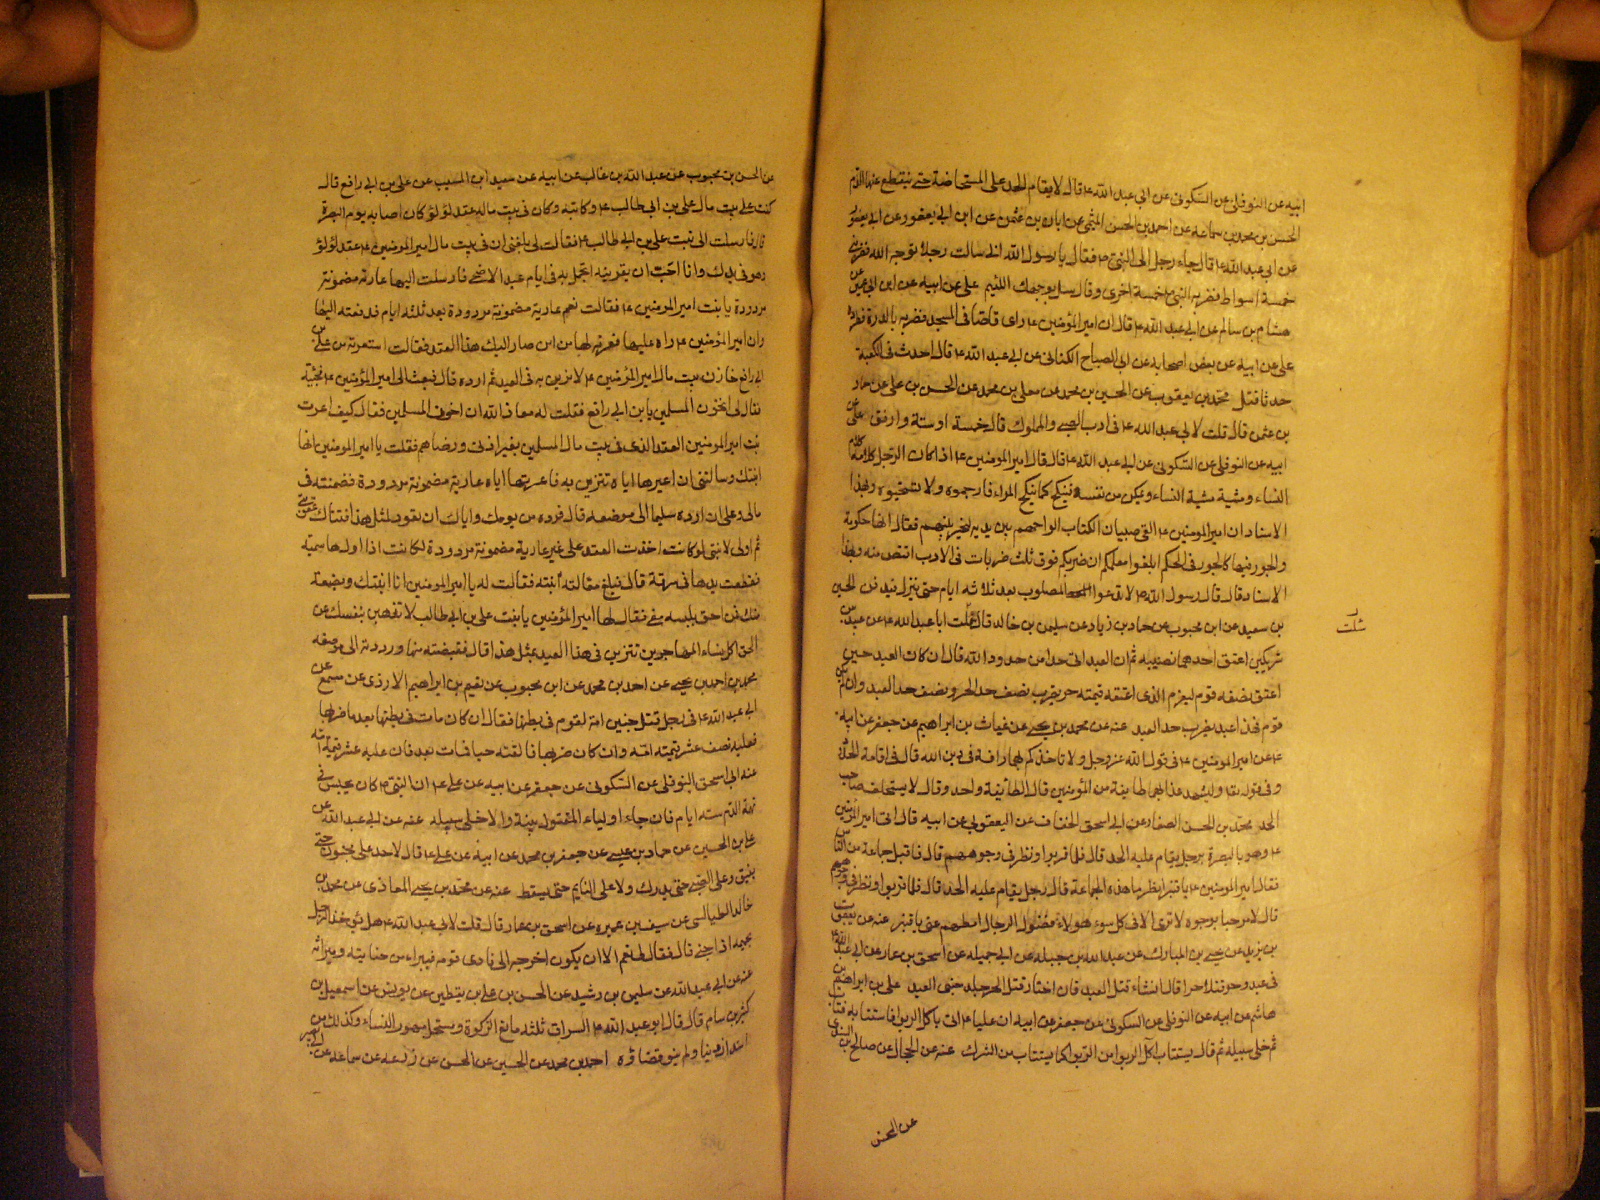 ابيه عن النوفلى عن السكونى عن ابى عبد الله ع قال لا يقام الحد على المستحاضة حتى ينقطع عنها الدم
الحسن بن محمد بن سماعه عن احمد بن الحسن الميثمى عن ابان بن عثمن عن ابن ابى يعفور عن ابى يعفور
عن ابى عبد الله ع قال جاء رجل الى النبى ص فقال يا رسول الله انى سالت رجلا بوجه الله فضربنى
خمسة اسواط فضربه النبى ص خمسة اخرى وقال سل بوجهك اللئيم على عن ابيه عن ابن ابى عمير عن
هشام بن سالم عن ابى عبد الله ع قال ان امير المؤمنين ع راى قاصا فى المسجد فضربه بالدرة وطرده
على عن ابيه عن بعض اصحابه عن ابى الصباح الكنانى عن ابى عبد الله ع قال احدث فى الكعبة
حدثا قتل محمد بن يعقوب عن الحسين بن محمد عن معلى بن محمد عن الحسن بن على عن حماد
بن عثمن قال قلت لابى عبد الله ع فى ادب الصبى والمملوك قال خمسة او ستة وارفق على عن
ابيه عن النوفلى عن السكونى عن ابى عبد الله ع قال قال امير المؤمنين ع اذا كان الرجل كلامه كلام
النساء ومشيه مشية النساء ويمكن من نفسه فينكح كما تنكح المراة فارجموه ولا تستحيوه وبهذا
الاسناد ان امير المؤمنين ع القى صبيان الكتاب الواحهم بين يديه ليخير بينهم فقال انها حكومة
والجور فيها كالجور فى الحكم ابلغوا معلمكم ان ضربكم فوق ثلث ضربات فى الادب اقتص منه وبهذا
الاسناد قال قال رسول الله ص لا تدعوا المصلوب بعد ثلاثه ايام حتى ينزل فيدفن الحسين
بن سعيد عن ابن محبوب عن حماد بن زياد عن سليمن بن خالد قال سئلت ابا عبد الله ع عن عبد بين
شريكين اعتق احدهما نصيبه ثم ان العبد اتى حدا من حدود الله قال ان كان العبد حين
اعتق نصفه قوم ليغرم الذى اعتقه قيمته حر يضرب نصف حد الحر ونصف حد العبد وان لم يكن
قوم فهذا عبد يضرب حد العبد عنه عن محمد بن يحيى عن غياث بن ابراهيم عن جعفر عن ابيه
ع عن امير المؤمنين ع فى قول الله عز وجل ولا تاخذكم بهما رافة فى دين الله قال فى اقامة الحدود
وفى قوله تعا وليشهد عذابهما طايفة من المؤمنين قال الطائفة واحد وقال لا يستحلف صاحب
الحد محمد بن الحسن الصفار عن ابى اسحق الخفاف عن اليعقوبى عن ابيه قال اتى امير المؤمنين
ع وهو بالبصرة برجل يقام عليه الحد قال فلما قربوا ونظر فى وجوههم قال فاقبل جماعة من الناس
فقال امير المؤمنين ع يا قنبر انظر ما هذه الجماعة قال رجل يقام عليه الحد قال فلما قربوا ونظر فى وجوههم
قال لا مرحبا بوجوه لا ترى الا فى كل سوء هولاء فضول الرجال امطهم عنى يا قنبر عنه عن يعقوب
بن يزيد عن يحيى بن المبارك عن عبد الله بن جبله عن ابى جميله عن اسحق بن عمار عن ابى عبد الله ع
فى عبد وحر قتلا حرا قال ان شاء قتل العبد فان اختار قتل الحر جلد جنبى العبد على بن ابراهيم بن
هاشم عن ابيه عن النوفلى عن السكونى عن جعفر عن ابيه ان عليا ع اتى باكل الربوا فاستتابه فتاب
ثم خلى سبيله ثم قال يستتاب اكل الربوا من الربوا كما يستتاب من الشرك عنه عن الحجال عن صالح بن السندى
ثلت
عن الحسن
عن الحسن بن محبوب عن عبد الله بن غالب عن ابيه عن سعيد ابن المسيب عن على بن ابى رافع قال
كنت على بيت مال على بن ابى طالب ع وكاتبه وكان فى بيت ماله عقد لؤلؤ كان اصابه يوم البصرة
قال فارسلت الى بنت على بن ابى طالب ع فقالت لى بلغنى ان فى بيت مال امير المؤمنين ع عقد لؤلؤ
وهو فى يدك وانا احب ان تعيرنيه اتجمل به فى ايام عيد الاضحى فارسلت اليها عارية مضمونة
مردودة يا بنت امير المؤمنين ع فقالت نعم عارية مضمونة مردودة بعد ثلثه ايام فدفعته اليها
وان امير المؤمنين ع راه عليها فعرفه فقال لها من اين صار اليك هذا العقد فقالت استعرته من على بن
ابى رافع خازن بيت مال امير المؤمنين ع لاتزين به فى العيد ثم ارده قال فبعث الى امير المؤمنين ع فجئته
فقال لى اتخون المسلمين يا بن ابى رافع فقلت له معاذ الله ان اخون المسلمين فقال كيف اعرت
بنت امير المؤمنين العقد الذى فى بيت مال المسلمين بغير اذنى ورضاهم فقلت يا امير المؤمنين انها
ابنتك وسالتنى ان اعيرها اياه تتزين به فاعرتها اياه عارية مضمونة مردودة فضمنته فى
مالى وعلى ان ارده سليما الى موضعه قال فرده من يومك واياك ان تعود لمثل هذا فتنالك عقوبتى
ثم اولى لابنتى لو كانت اخذت العقد على غير عارية مضمونة مردودة لكانت اذا اول هاشمية
قطعت يدها فى سرقة قال فبلغ مقالته ابنته فقالت له يا امير المومنين انا ابنتك وبضعة
منك فمن احق بلبسه منى فقال لها امير المؤمنين يا بنت على بن ابى طالب لا تذهبن بنفسك عن
الحق اكل نساء المهاجرين تتزين فى هذا العيد بمثل هذا قال فقبضته منها ورددته الى موضعه
محمد بن احمد بن يحيى عن احمد بن محمد عن ابن محبوب عن نعيم بن ابراهيم الازدى عن مسمع عن
ابى عبد الله ع فى رجل قتل جنين امة لقوم فى بطنها فقال ان كان مات فى بطنها بعد ما ضربها
فعليه نصف عشر قيمته امه وان كان ضربها فالقته حيا فمات بعد فان عليه عشر قيمة امه
عنه ابى اسحق النوفلى عن السكونى عن جعفر عن ابيه عن على ع ان النبى ص كان يحبس فى
تهمة الدم سته ايام فان جاء اولياء المقتول ببينة والا خلى سبيله عنه عن ابى عبد الله عن
على بن الحسين عن حماد بن عيسى عن جعفر بن محمد عن ابيه عن على ع قال لا حد على مجنون حتى
يفيق وعلى الصبى حتى يدرك ولا على النايم حتى يستيقظ عنه عن محمد بن يحيى المعاذى عن محمد بن
خالد الطيالسى عن سيف بن عميره عن اسحق بن عمار قال قلت لابى عبد الله ع هل يؤخذ الرجل
بحميمه اذا جنى قال فقال لى نعم الا ان يكون اخرجه الى نادى قومه فتبراء من جنايته وميراثه
عنه عن ابى عبد الله عن سليمن بن رشيد عن الحسن بن على بن يقطين عن يونس عن اسمعيل بن
كثير بن سام قال قال ابو عبد الله ع السراق ثلثه مانع الزكوة ومستحل مهور النساء وكذلك من
استدان دينا ولم ينو قضاؤه احمد بن محمد عن الحسين عن الحسن عن زرعه عن سماعه عن ابى بصير